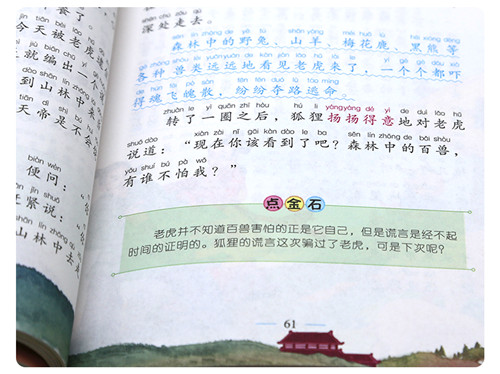 深处走去。
sēn lín zhōng de yě tù shān yáng méi huā lù hēi xióng děng
森林中的野兔、山羊、梅花鹿、黑熊等
各种兽类远远地看见老虎来了，一个个都吓
得魂飞魄散，纷纷夺路逃命。
zhuàn le yì quān zhī hòu hú li yáng yáng dé yì de duì lǎo hǔ
转了一圈之后，狐狸扬扬得意地对老虎
shuō dào xiàn zài nǐ gāi kàn dào le ba sēn lín zhōng de bǎi shòu
说道：“现在你该看到了吧？森林中的百兽，
yǒu shuí bú pà wǒ
有谁不怕我？”
点金石
老虎并不知道百兽害怕的正是它自己，但是谎言是经不起
时间的证明的。狐狸的谎言这次骗过了老虎，可是下次呢？
61
今天被老虎
就编出一个
到山林中来
天帝是不会
biàn wèn
便问：“
jǐn shuō
赶紧说：
山林中去